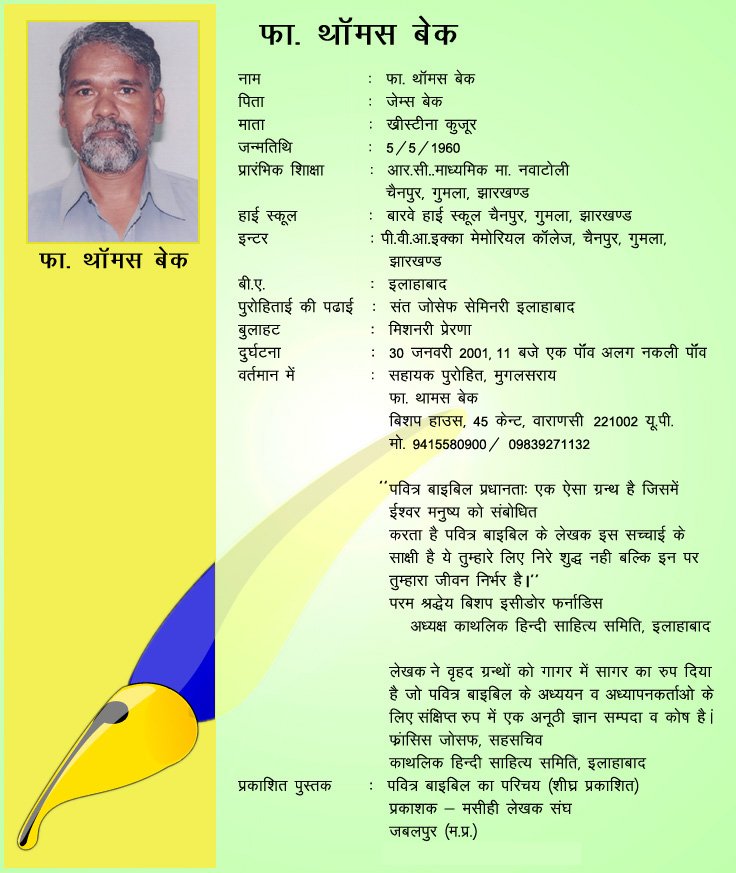 फा. थॉमस बेक
फा. थॉमस बेक
नाम : फा. थॉमस बेक
पिता : जेम्स बेक
माता : ख्रीस्टीना कुजूर
जन्मतिथि : 5/5/1960
प्रारंभिक शिाक्षा : आर.सी..माध्यमिक मा. नवाटोली
चैनपुर, गुमला, झारखण्ड
हाई स्कूल : बारवे हाई स्कूल चैनपुर, गुमला, झारखण्ड
इन्टर : पी.वी.आ.इक्का मेमोरियल कॉलेज, चैनपुर, गुमला,
झारखण्ड
बी.ए. : इलाहाबाद
पुरोहिताई की पढाई : संत जोसेफ सेमिनरी इलाहाबाद
बुलाहट : मिशनरी प्रेरणा
दुर्घटना : 30 जनवरी 2001, 11 बजे एक पॉंव अलग नकली पॉंव
वर्तमान में : सहायक पुरोहित, मुगलसराय
फा. थामस बेक
बिशप हाउस, 45 केन्ट, वाराणसी 221002 यू.पी.
मो. 9415580900/ 09839271132
''पवित्र बाइबिल प्रधानताः एक ऐसा ग्रन्थ है जिसमें
ईश्वर मनुष्य को संबोधित
करता है पवित्र बाइबिल के लेखक इस सच्चाई के
साक्षी है ये तुम्हारे लिए निरे शुद्ध नही बल्कि इन पर
तुम्हारा जीवन निर्भर है।''
परम श्रद्धेय बिशप इसीडोर फर्नाडिस
अध्यक्ष काथलिक हिन्दी साहित्य समिति, इलाहाबाद
लेखक ने वृहद ग्रन्थों को गागर में सागर का रुप दिया
है जो पवित्र बाइबिल के अध्ययन व अध्यापनकर्ताओ के
लिए संक्षिप्त रुप में एक अनूठी ज्ञान सम्पदा व कोष है।
फ्रांसिस जोसफ, सहसचिव
काथलिक हिन्दी साहित्य समिति, इलाहाबाद
प्रकाशित पुस्तक : पवित्र बाइबिल का परिचय (शीघ्र प्रकाशित)
प्रकाशक – मसीही लेखक संघ
जबलपुर (म.प्र.)